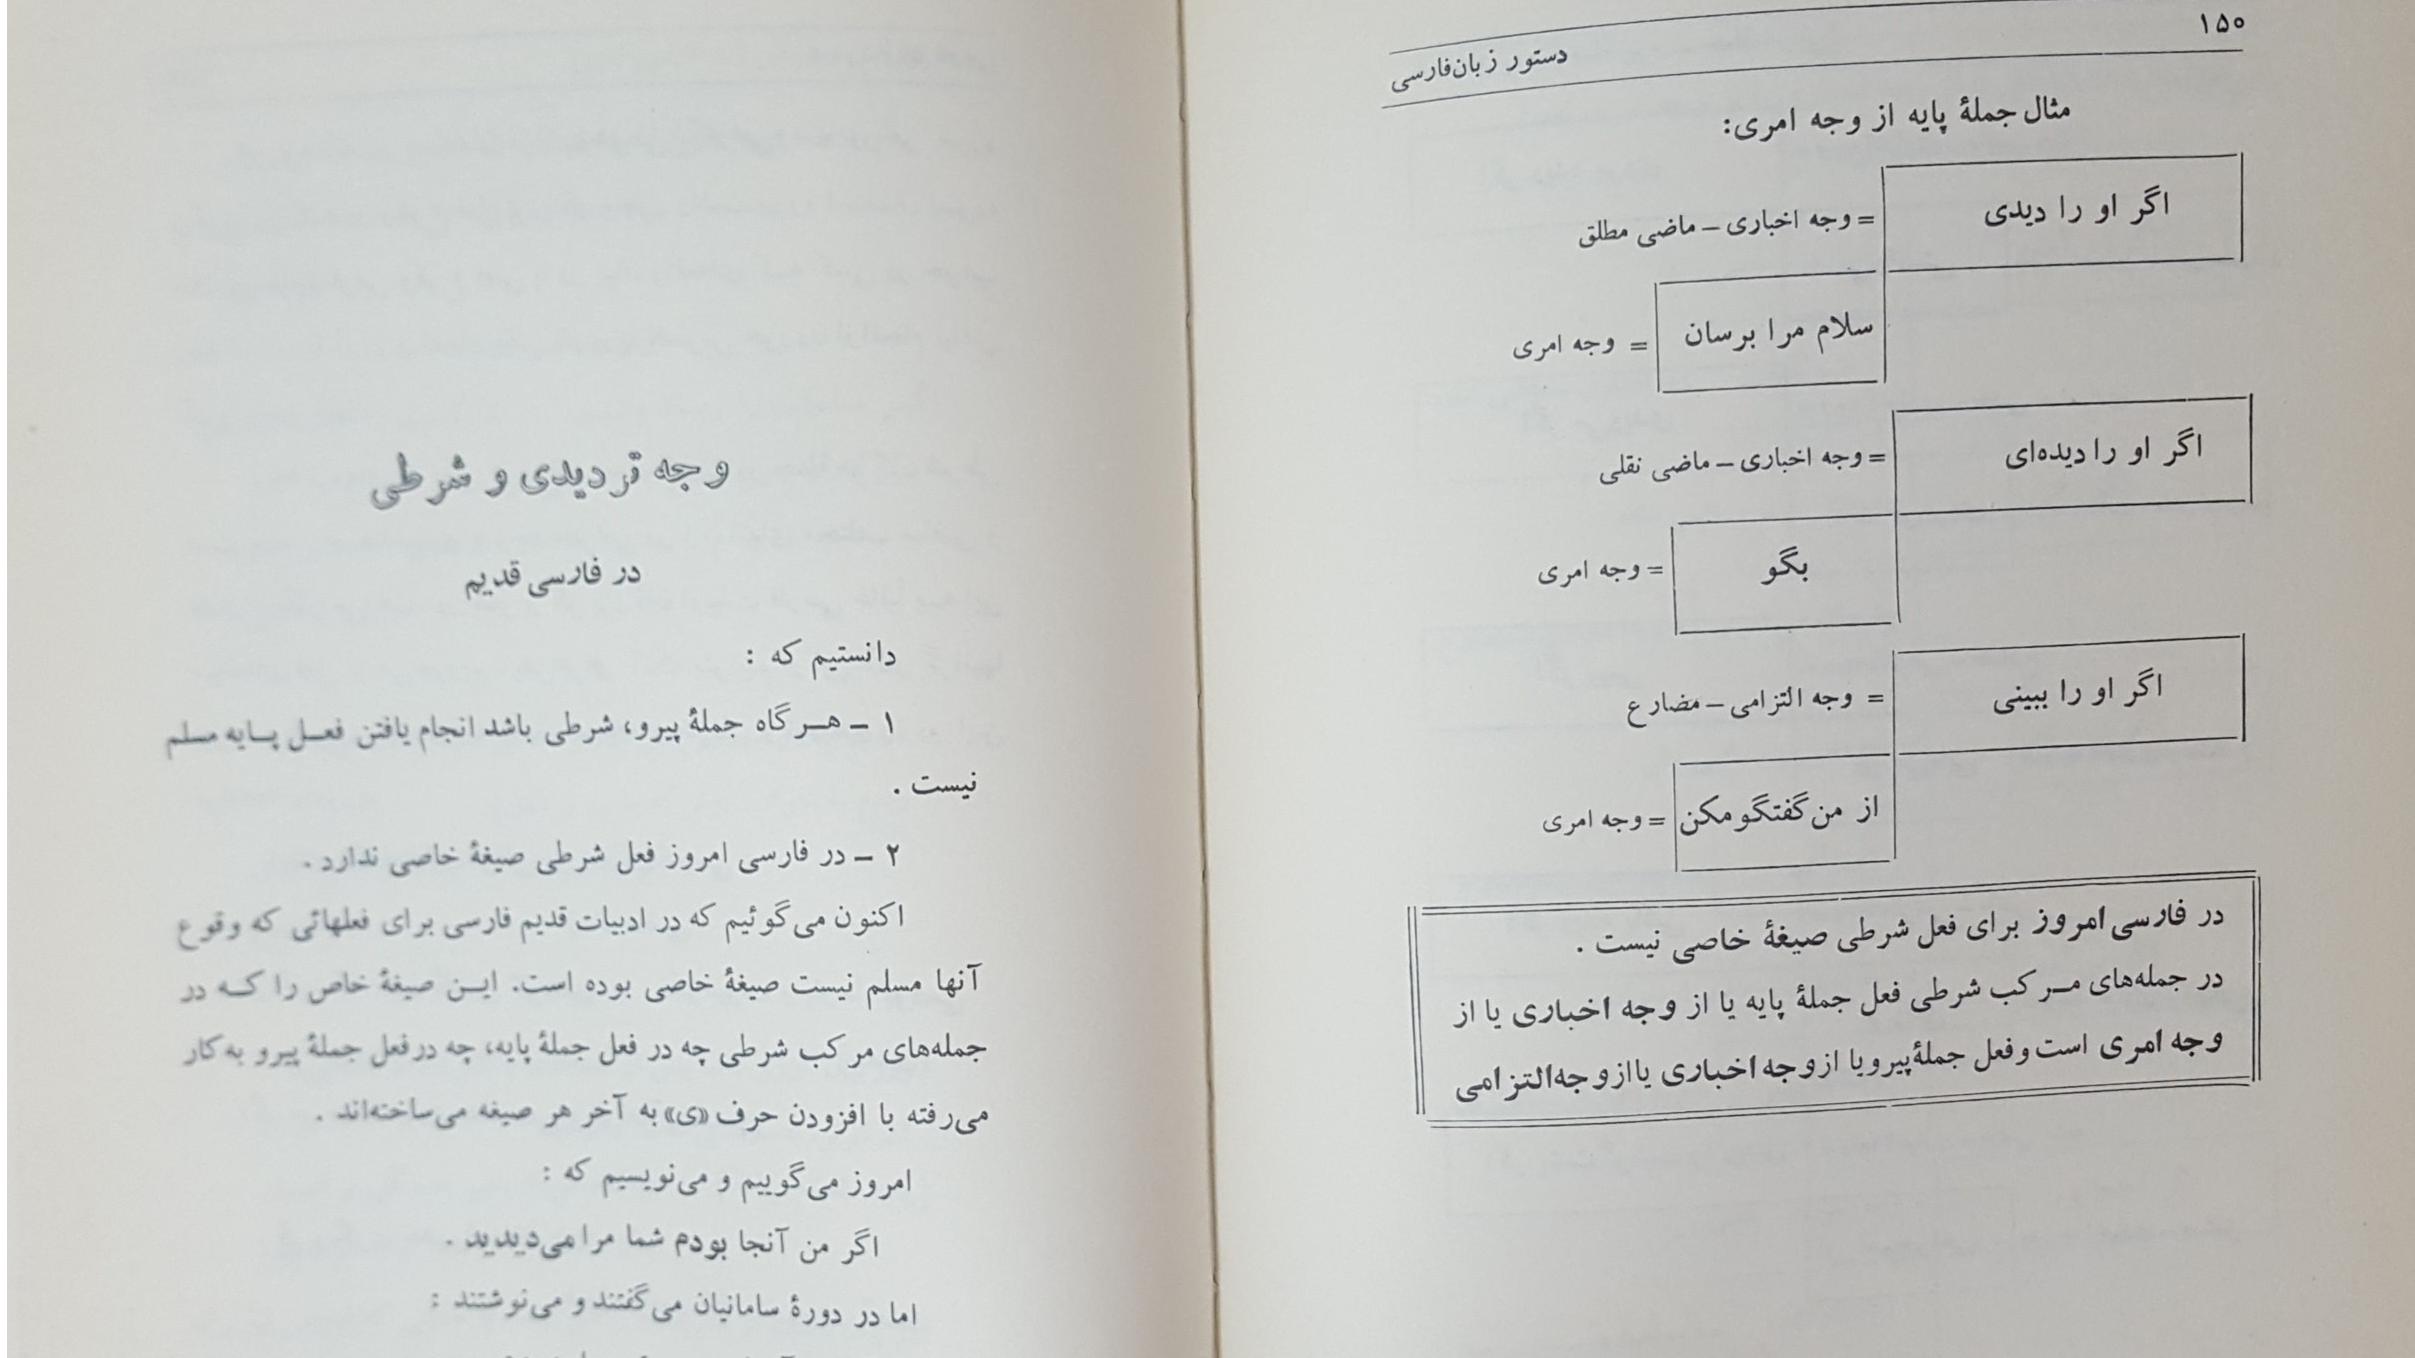 ۱۵۰
دستور زبان‌فارسی
مثال جملهٔ پایه از وجه امری:
اگر او را دیدی = وجه اخباری – ماضی مطلق
سلام مرا برسان = وجه امری
اگر او را دیده‌ای = وجه اخباری – ماضی نقلی
بگو = وجه امری
اگر او را ببینی = وجه التزامی – مضارع
از من گفتگو مکن = وجه امری
در فارسی امروز برای فعل شرطی صیغهٔ خاصی نیست .
در جمله‌های مـرکب شرطی فعل جملهٔ پایه یا از وجه اخباری یا از
وجه امری است و فعل جملهٔ پیرو یا از وجه اخباری یا از وجه التزامی
وجه تردیدی و شرطی
در فارسی قدیم
دانستیم که :
۱ – هـرگاه جملهٔ پیرو، شرطی باشد انجام یافتن فعـل پـایه مسلم
نیست .
۲ – در فارسی امروز فعل شرطی صیغهٔ خاصی ندارد .
اکنون می‌گوئیم که در ادبیات قدیم فارسی برای فعلهائی که وقوع
آنها مسلم نیست صیغهٔ خاصی بوده است. ایـن صیغهٔ خاص را کـه در
جمله‌های مرکب شرطی چه در فعل جملهٔ پایه، چه در فعل جملهٔ پیرو به‌کار
می‌رفته با افزودن حرف «ی» به آخر هر صیغه می‌ساخته‌اند .
امروز می‌گوییم و می‌نویسیم که :
اگر من آنجا بودم شما مرا می‌دیدید .
اما در دورهٔ سامانیان می‌گفتند و می‌نوشتند :